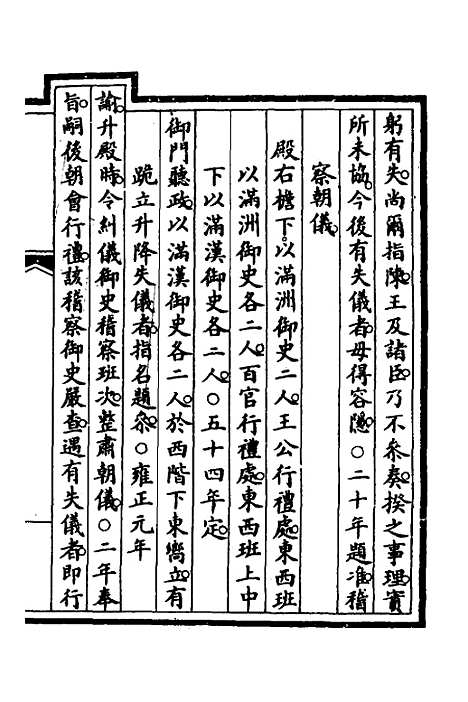 躬有失。尚爾指陳。王及諸臣。乃不參奏。揆之事理。實
所未協。今後有失儀者。毋得容隱。○二十年題准。稽
察朝儀。
殿右檐下。以滿洲御史二人。王公行禮處。東西班
以滿洲御史各二人。百官行禮處。東西班上中
下以滿漢御史各二人。○五十四年定。
御門聽政。以滿漢御史各二人。於西階下東嚮立。有
跪立升降失儀者。指名題參。○雍正元年
諭。升殿時。令糾儀御史稽察班次。整肅朝儀。○二年奉
旨。嗣後朝會行禮。該稽察御史嚴查。遇有失儀者。即行